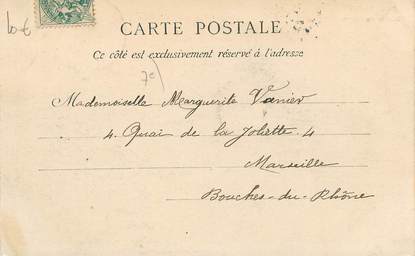 CARTE POSTALE
Ce côté est exclusivement réservé à l'adresse
Mademoiselle Marguerite Vanier
4. Quai de la Joliette. 4
Marseille
Bouches-du-Rhône